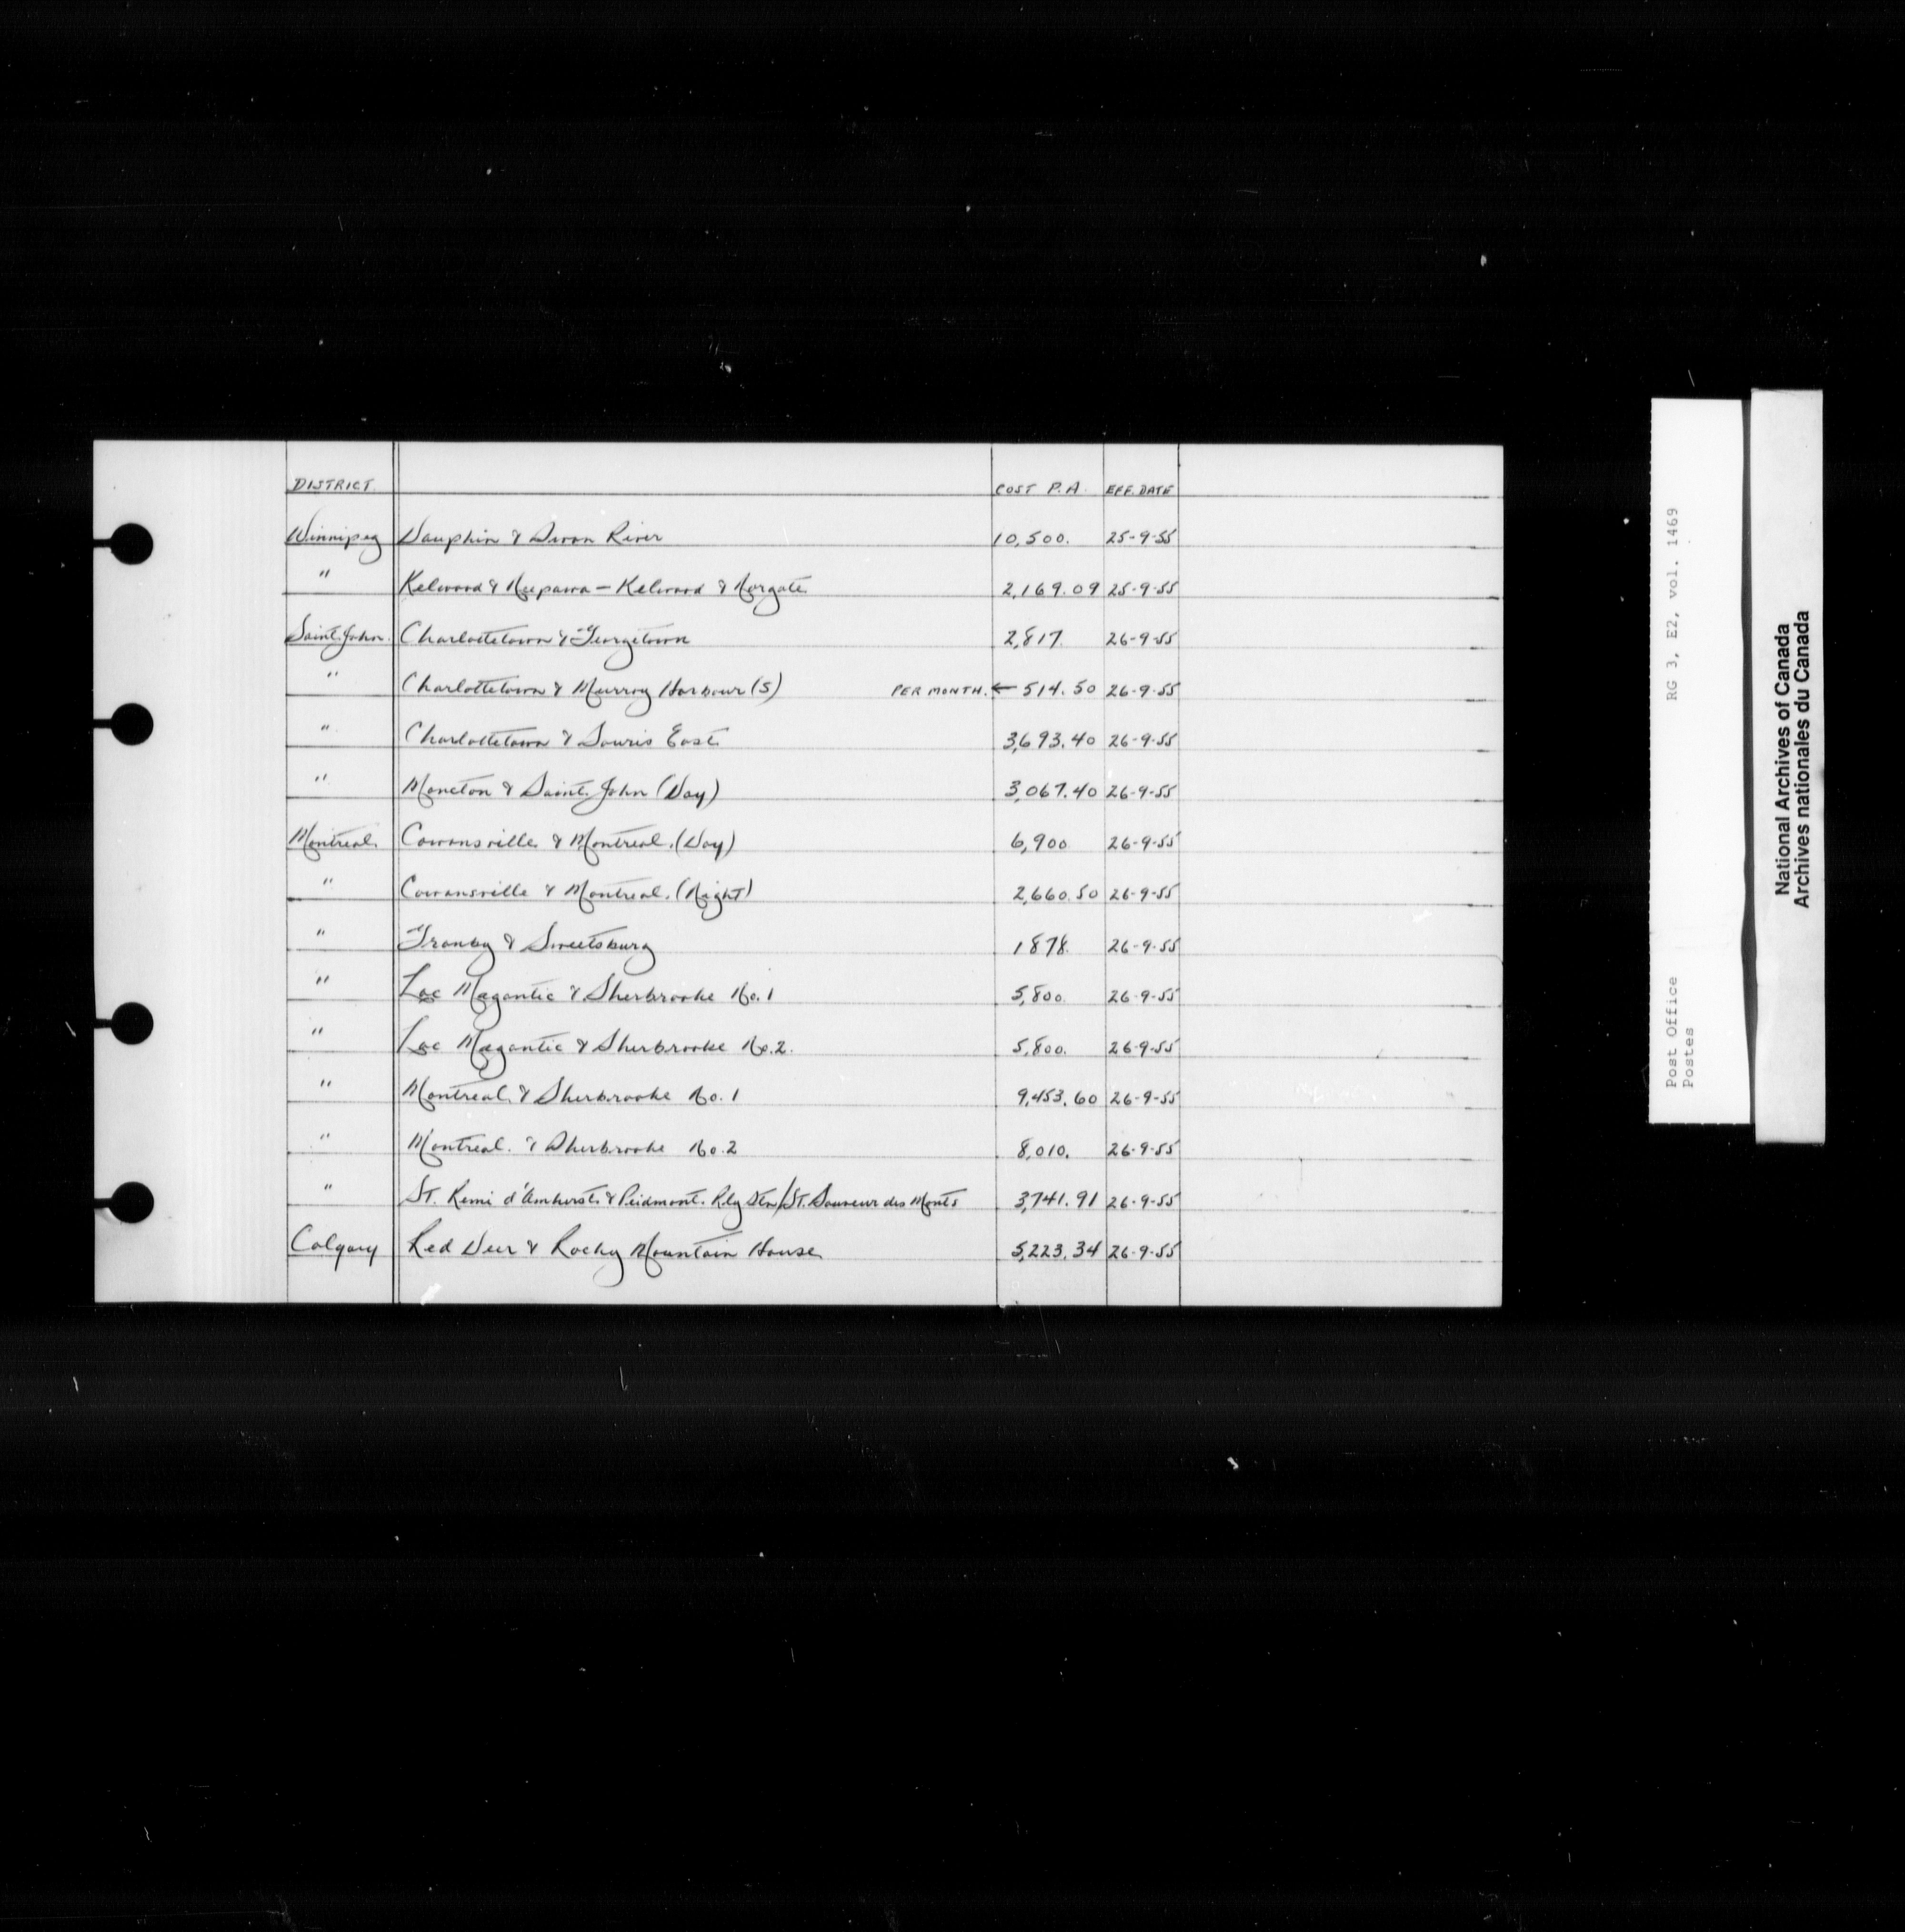 DISTRICT. COST P.A. EFF. DATE
Winnipeg Dauphin & Swan River 10,500. 25-9-55
" Kelwood & Neepawa - Kelwood & Norgate 2,169.09 25-9-55
Saint John. Charlottetown & Georgetown 2,817. 26-9-55
" Charlottetown & Murray Harbour (S) PER MONTH. ← 514.50 26-9-55
" Charlottetown & Souris East. 3,693.40 26-9-55
" Moncton & Saint John (Day) 3,067.40 26-9-55
Montreal. Cowansville & Montreal. (Day) 6,900 26-9-55
" Cowansville & Montreal. (Night) 2,660.50 26-9-55
" Granby & Sweetsburg 1878. 26-9-55
" Lac Megantic & Sherbrooke No. 1 5,800. 26-9-55
" Lac Megantic & Sherbrooke No. 2. 5,800. 26-9-55
" Montreal. & Sherbrooke No. 1 9,453.60 26-9-55
" Montreal. & Sherbrooke No. 2 8,010. 26-9-55
" St. Remi d'Amherst. & Peidmont. Rly Stn/St. Sauveur des Monts 3,741.91 26-9-55
Calgary Red Deer & Rocky Mountain House 5,223.34 26-9-55
RG 3, E2, vol. 1469
Post Office
Postes
National Archives of Canada
Archives nationales du Canada